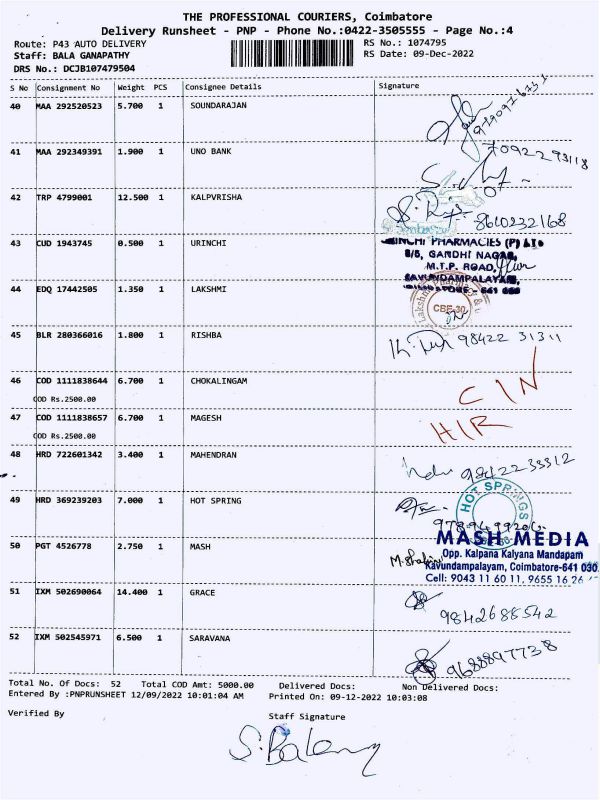 THE PROFESSIONAL COURIERS, Coimbatore
Delivery Runsheet - PNP - Phone No.:0422-3505555 - Page No.:4
Route: P43 AUTO DELIVERY RS No.: 1074795
Staff: BALA GANAPATHY RS Date: 09-Dec-2022
DRS No.: DCJB107479504
S No Consignment No Weight PCS Consignee Details Signature
40 MAA 292520523 5.700 1 SOUNDARAJAN
41 MAA 292349391 1.900 1 UNO BANK
7092293118
42 TRP 4799001 12.500 1 KALPVRISHA
8610232168
43 CUD 1943745 0.500 1 URINCHI
PHARMACIES (P) Ltd
GANDHI NAGAR,
M.T.P. ROAD,
KAVUNDAMPALAYAM,
44 EDQ 17442505 1.350 1 LAKSHMI
CBE-30
45 BLR 280366016 1.800 1 RISHBA
98422 31311
46 COD 1111838644 6.700 1 CHOKALINGAM
COD Rs.2500.00
C/N
47 COD 1111838657 6.700 1 MAGESH
COD Rs.2500.00
H/R
48 HRD 722601342 3.400 1 MAHENDRAN
9842233312
49 HRD 369239203 7.000 1 HOT SPRING
HOT SPRINGS
50 PGT 4526778 2.750 1 MASH
MASH MEDIA
Opp. Kalpana Kalyana Mandapam
Kavundampalayam, Coimbatore-641 030
Cell: 9043 11 60 11, 9655 16 26
51 IXM 502690064 14.400 1 GRACE
9842688542
52 IXM 502545971 6.500 1 SARAVANA
9688897738
Total No. Of Docs: 52 Total COD Amt: 5000.00 Delivered Docs: Non Delivered Docs:
Entered By :PNPRUNSHEET 12/09/2022 10:01:04 AM Printed On: 09-12-2022 10:03:08
Verified By Staff Signature